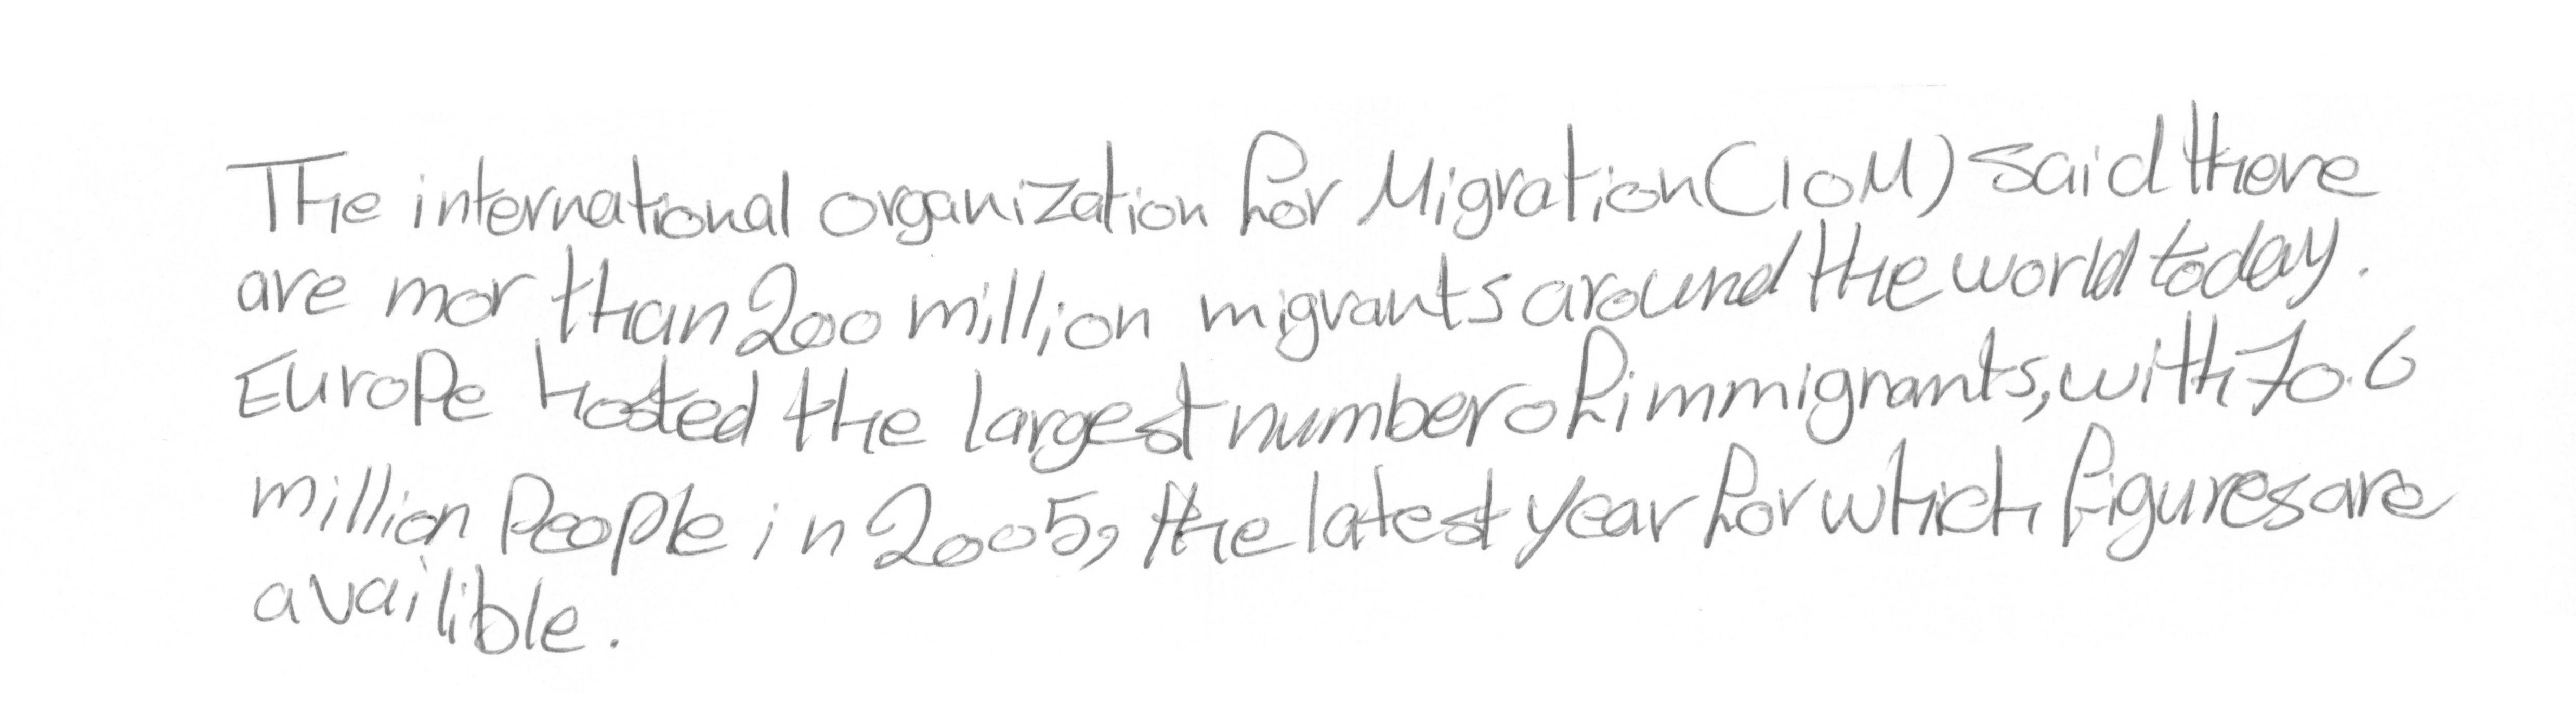 The international organization for Migration (IOM) said there
are mor than 200 million migrants around the world today.
Europe hosted the largest number of immigrants, with 70.6
million People in 2005, the latest year for which figures are
availible.